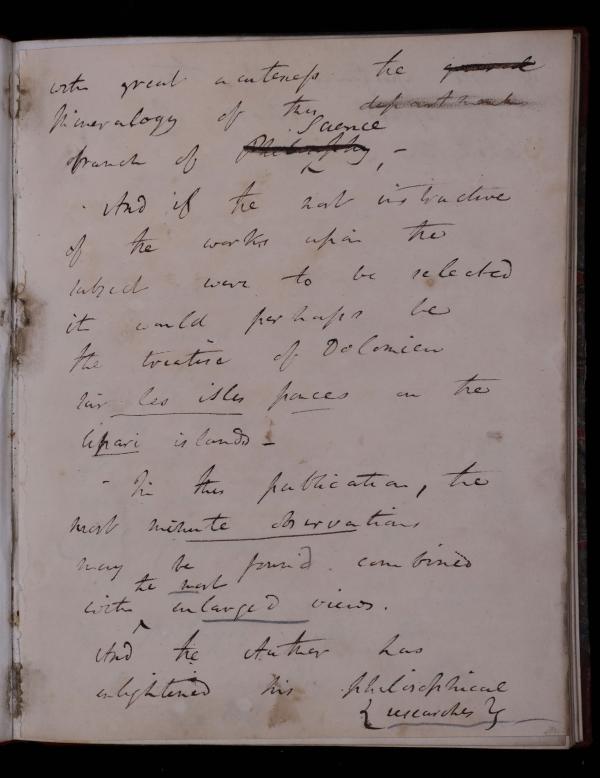 with great acuteness the
Mineralogy of this department
Science
branch of Philosophy, -
And if the most instructive
of the works upon the
subject were to be selected
it would perhaps be
the treatise of Dolomieu
sur les isles ponces on the
lipari islands -
- In this publication, the
most minute observations
may be found combined
the most
with enlarged views.
And the Author has
enlightened his philosophical
{ researches }